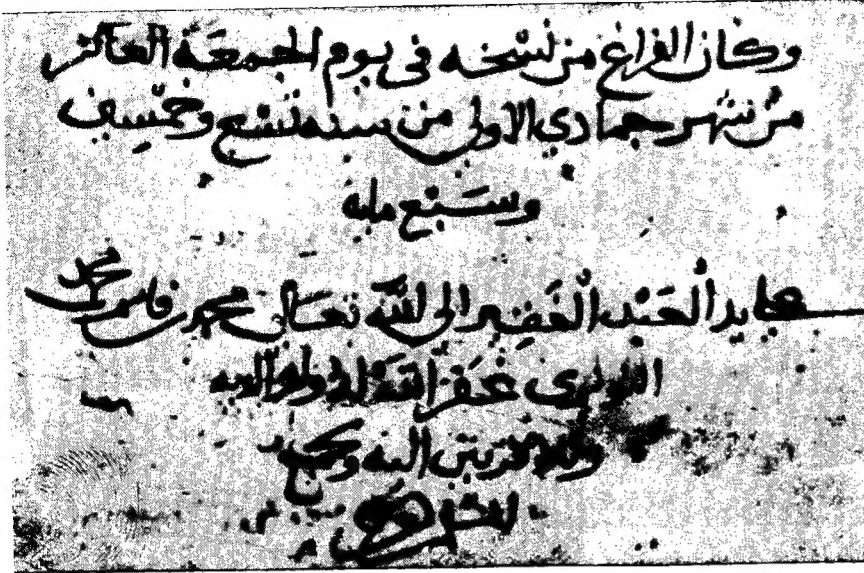 وكان الفراغ من نسخه فى يوم الجمعة العاشر
من شهر جمادي الاولى من سنه تسع وخمسين
وسبع مايه
على يد العبد الفقير الى الله تعالى محمد بن قاسم بن محمد
غفر الله له ولوالديه
اليه وجميع